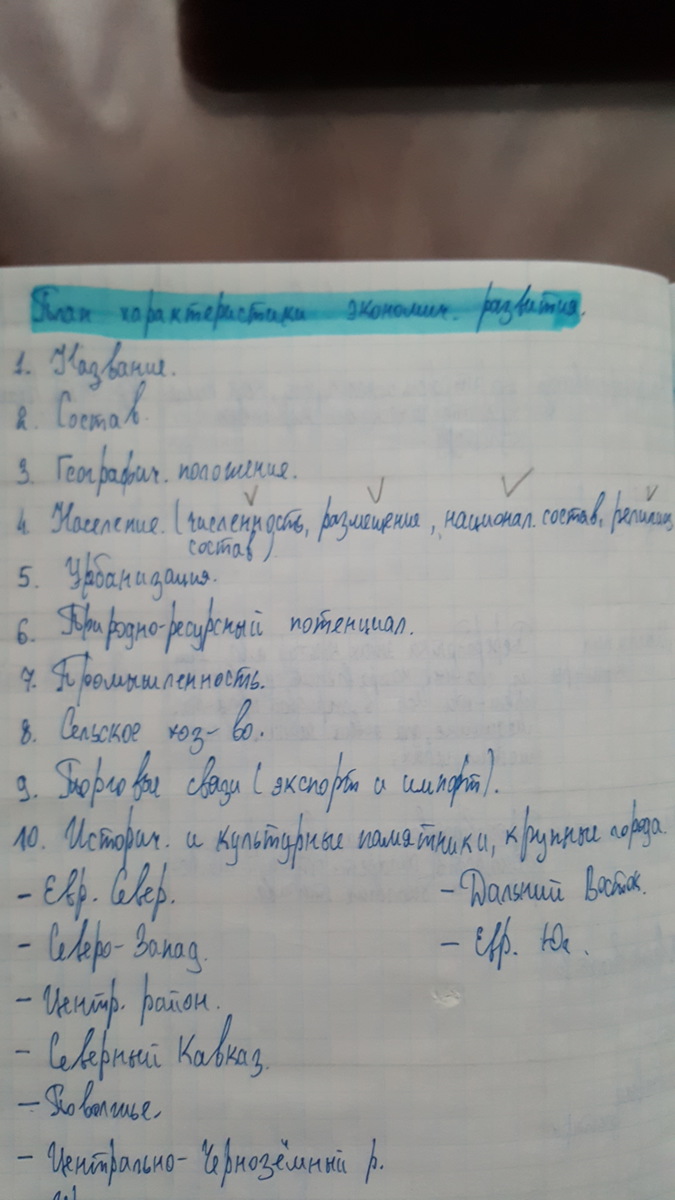 План характеристики экономич. развития.
1. Название.
2. Состав.
3. Географич. положение.
4. Население. (численность, размещение, национал. состав, религиоз
состав)
5. Урбанизация.
6. Природно-ресурсный потенциал.
7. Промышленность.
8. Сельское хоз-во.
9. Торговые связи (экспорт и импорт).
10. Историч. и культурные памятники, крупные города.
- Евр. Север.
- Дальний Восток.
- Северо-Запад.
- Евр. Юг.
- Центр. район.
- Северный Кавказ.
- Поволжье.
- Центрально-Чернозёмный р.